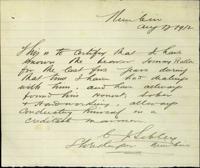 Aug 27 1912
This is to Certify that I have
known the bearer James
for the last five years during
that time I have had dealings
with him, and have always
found him Honest, Sober
& Hardworking, always
Conducting himself in a
manner